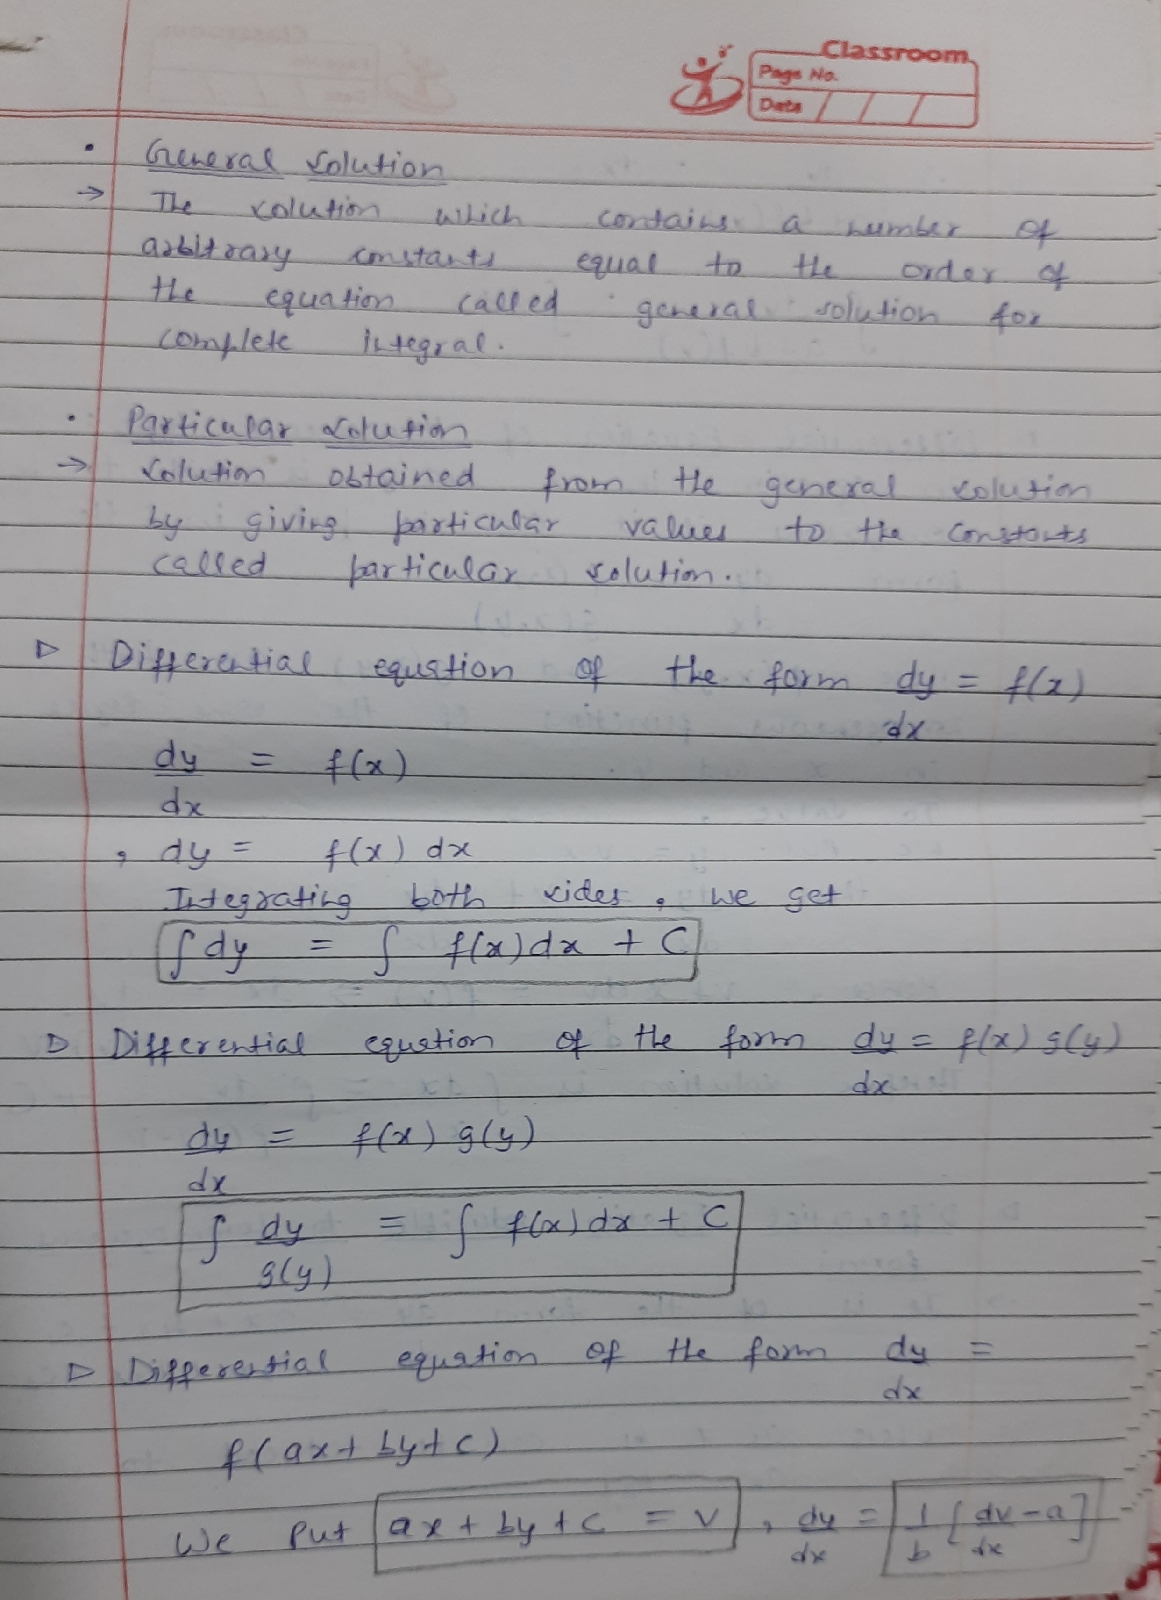 Classroom
Page No.
Date
• General Solution
→ The solution which contains a number of
arbitrary constants equal to the order of
the equation called general solution for
complete integral.
• Particular solution
→ Solution obtained from the general solution
by giving particular values to the constants
called particular solution.
▷ Differential equstion of the form dy/dx = f(x)
dy/dx = f(x)
, dy = f(x) dx
Integrating both sides, we get
∫dy = ∫ f(x)dx + C
▷ Differential equstion of the form dy/dx = f(x) g(y)
dy/dx = f(x) g(y)
∫ dy/g(y) = ∫ f(x)dx + C
▷ Differential equation of the form dy/dx =
f(ax+by+c)
We Put ax + by + c = v, dy/dx = 1/b [dv/dx - a]